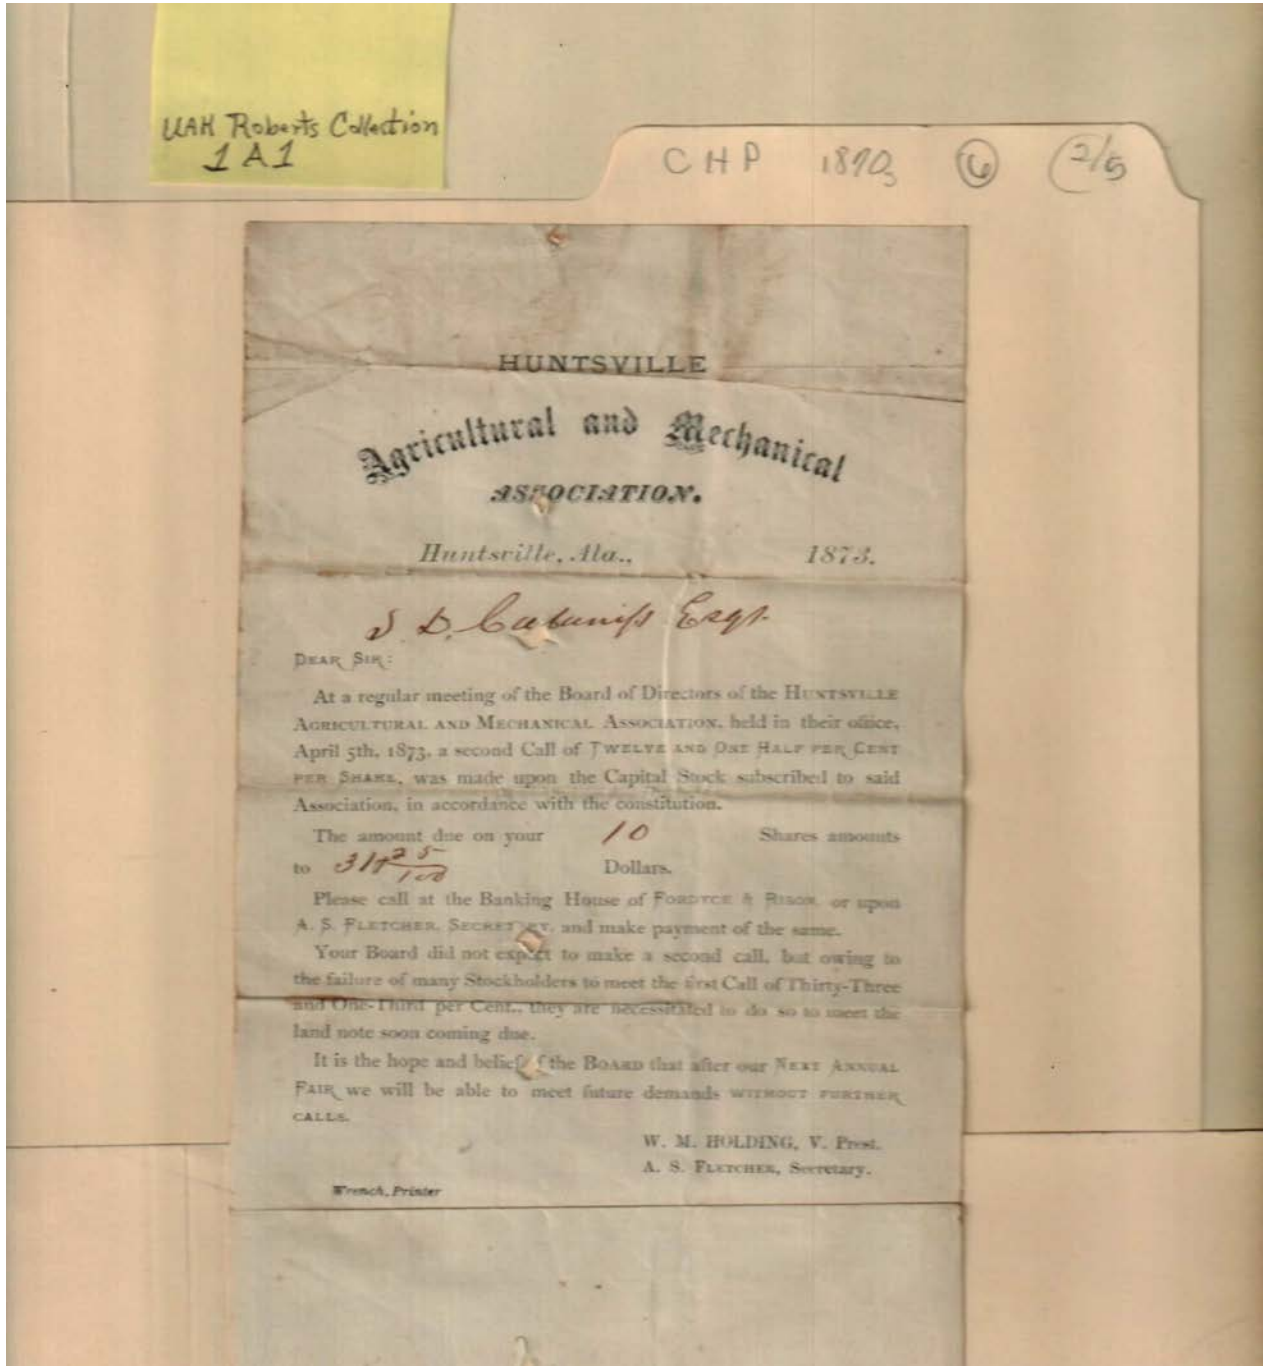 UAH Roberts Collection
1A1
CHP 1870s 6 2/5
HUNTSVILLE
Agricultural and Mechanical
ASSOCIATION.
Huntsville, Ala., 1873.
S. D. Cabaniss Esqr.
DEAR SIR:
At a regular meeting of the Board of Directors of the HUNTSVILLE
AGRICULTURAL AND MECHANICAL ASSOCIATION, held in their office,
April 5th, 1873, a second Call of TWELVE AND ONE HALF PER CENT
PER SHARE, was made upon the Capital Stock subscribed to said
Association, in accordance with the constitution.
The amount due on your 10 Shares amounts
to 25/100 Dollars.
Please call at the Banking House of FORDYCE & RISON, or upon
A. S. FLETCHER, SECRETARY, and make payment of the same.
Your Board did not expect to make a second call, but owing to
the failure of many Stockholders to meet the first Call of Thirty-Three
and One-Third per Cent., they are necessitated to do so to meet the
land note soon coming due.
It is the hope and belief of the BOARD that after our NEXT ANNUAL
FAIR we will be able to meet future demands WITHOUT FURTHER
CALLS.
W. M. HOLDING, V. Prest.
A. S. FLETCHER, Secretary.
Wrench, Printer